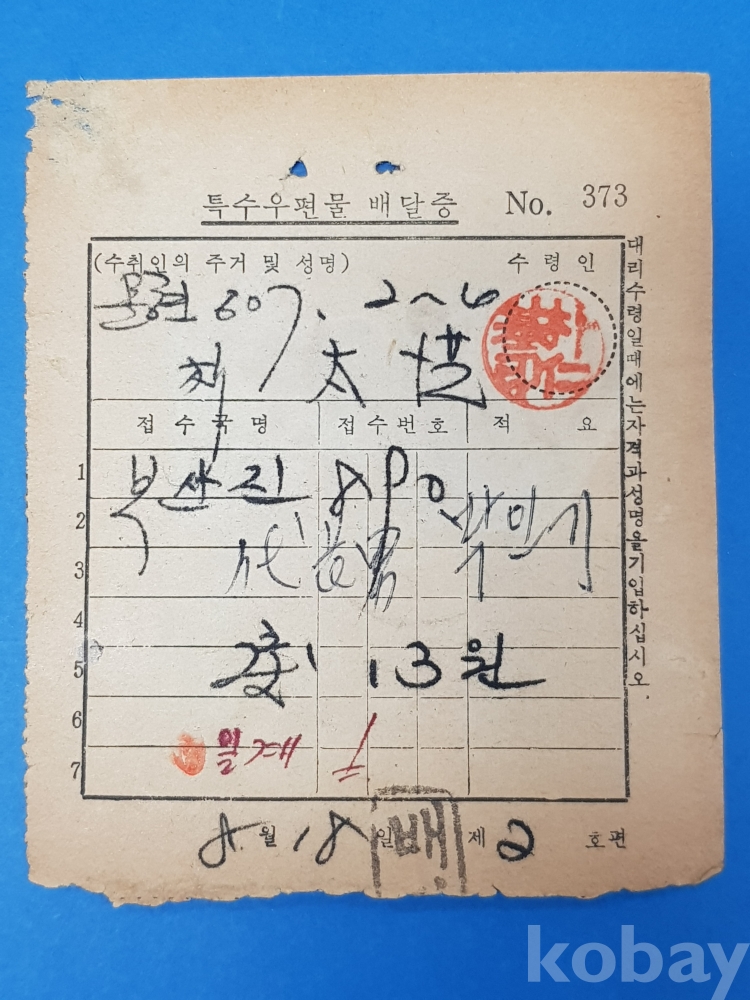 특수우편물 배달증 No. 373
(수취인의 주거 및 성명) 수령인
607. 2~6
太
접수국명 접수번호 적 요
1 부산진 890
2 박인기
3 代
4
5 13원
6
7 일계 1
8월 18일 제 2 호편
배
대리수령일때에는자격과성명을기입하십시오.
kobay